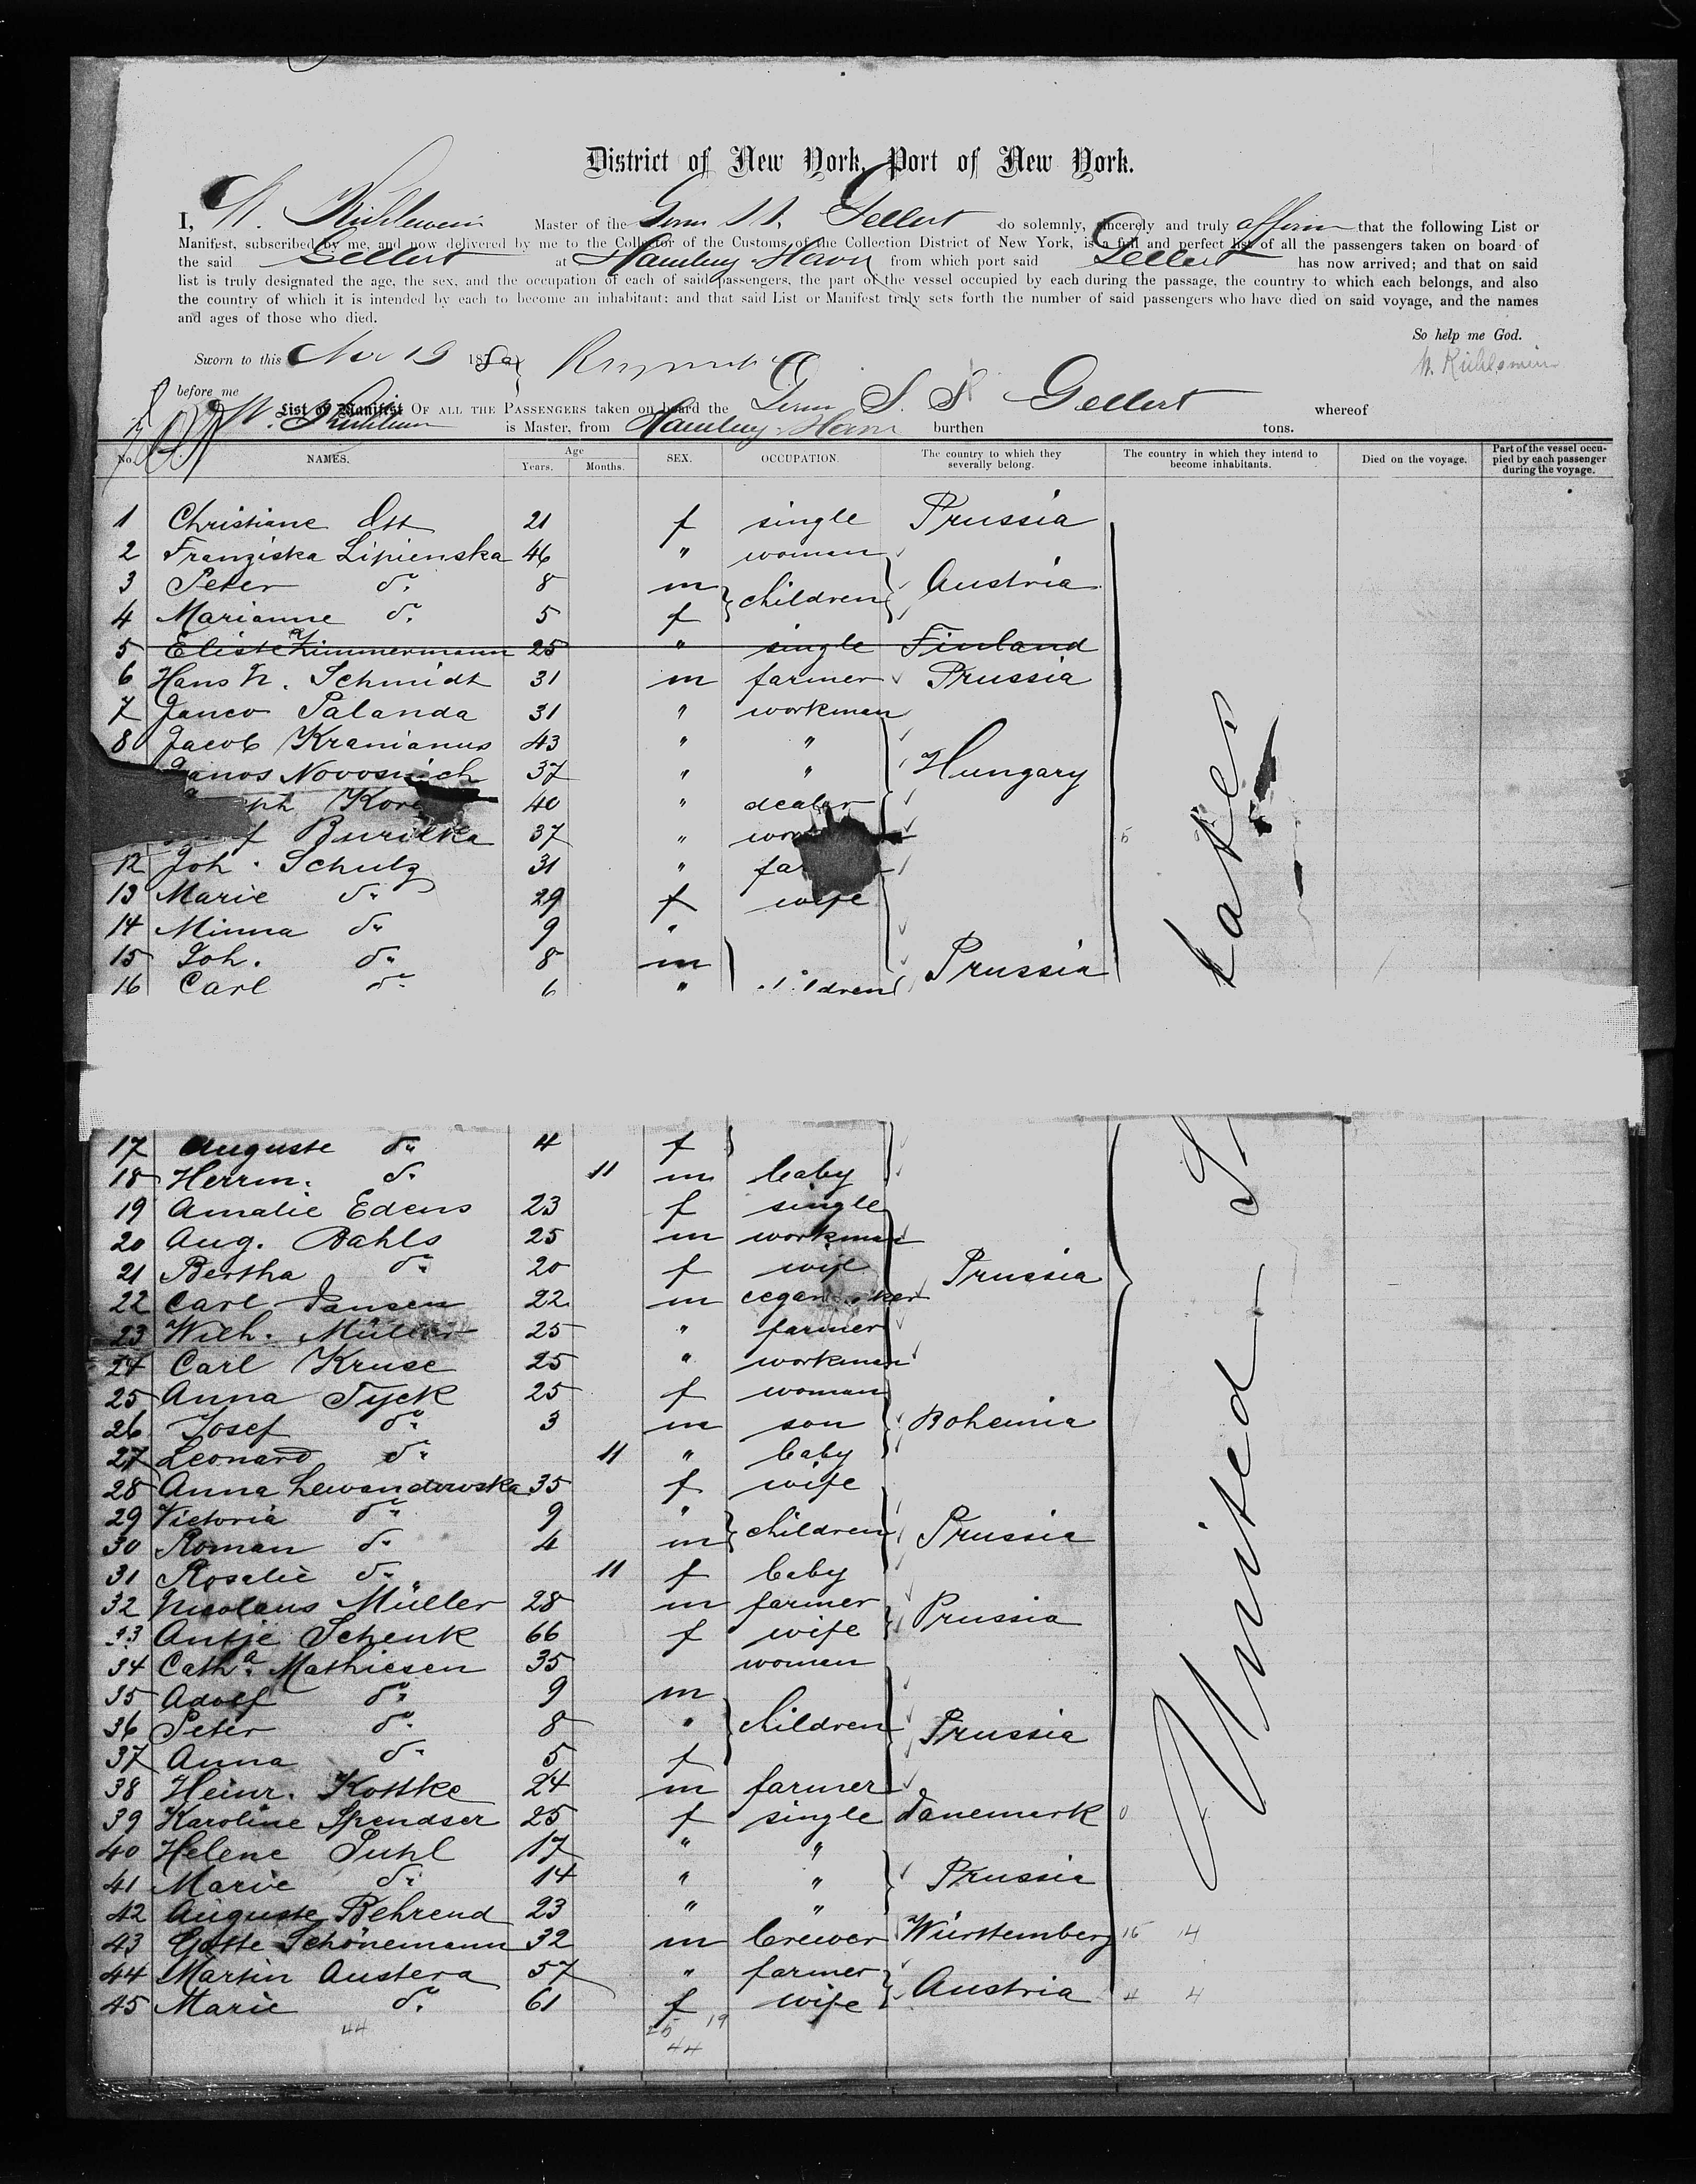 District of New York, Port of New York.
I, W. Kühlewein Master of the Germ S. S. Gellert do solemnly, sincerely and truly affirm that the following List or
Manifest, subscribed by me, and now delivered by me to the Collector of the Customs of the Collection District of New York, is a full and perfect list of all the passengers taken on board of
the said Gellert at Hamburg Havre from which port said Gellert has now arrived; and that on said
list is truly designated the age, the sex, and the occupation of each of said passengers, the part of the vessel occupied by each during the passage, the country to which each belongs, and also
the country of which it is intended by each to become an inhabitant; and that said List or Manifest truly sets forth the number of said passengers who have died on said voyage, and the names
and ages of those who died.
So help me God.
Sworn to this Nov 19 18
W. Kühlewein
before me
List or Manifest OF ALL THE PASSENGERS taken on board the Germ S. S. Gellert whereof
W. Kühlewein is Master, from Hamburg Havre burthen tons.
No. NAMES. Age Years. Months. SEX. OCCUPATION. The country to which they severally belong. The country in which they intend to become inhabitants. Died on the voyage. Part of the vessel occupied by each passenger during the voyage.
1 Christiane Ott 21 f single Prussia
2 Franziska Lipienska 46 " woman
3 Peter do. 8 m children Austria
4 Marianne do. 5 f
5 Zimmermann 25 " single Finland
6 Hans H. Schmidt 31 m farmer Prussia
7 Janco Palanda 31 " workman
8 Jacob Kranianus 43 " "
Janos 37 " " Hungary
40 " dealer
Burilka 37 "
12 Joh. Schulz 31 "
13 Marie do. 29 f wife
14 Minna do. 9 "
15 Joh. do. 8 m Prussia
16 Carl do. 6 " children
17 Auguste do. 4 f
18 Herrm. do. 11 m baby
19 Amalie Edens 23 f single
20 Aug. Bahls 25 m workman
21 Bertha do. 20 f wife Prussia
22 Carl Jansen 22 m
23 Wilh. Müller 25 " farmer
24 Carl Kruse 25 " workman
25 Anna Tyck 25 f woman
26 Josef do. 3 m son Bohemia
27 Leonard do. 11 " baby
28 Anna Lewandowska 35 f wife
29 Victoria do. 9 " children Prussia
30 Roman do. 4 m
31 Rosalie do. 11 f baby
32 Nicolaus Müller 28 m farmer Prussia
33 Antje Schenk 66 f wife
34 Catha. Mathiesen 35 woman
35 Adolf do. 9 m
36 Peter do. 8 " children Prussia
37 Anna do. 5 f
38 Heinr. Kottke 24 m farmer
39 Karoline Spendser 25 f single Danemark 0
40 Helene Suhl 17 " "
41 Marie do. 14 " " Prussia
42 Auguste Behrend 23 " "
43 Gotte Schönemann 32 m brewer Württemberg 15 4
44 Martin Austera 57 " farmer Austria
45 Marie do. 61 f wife 4 4
44 25 19
44
United States